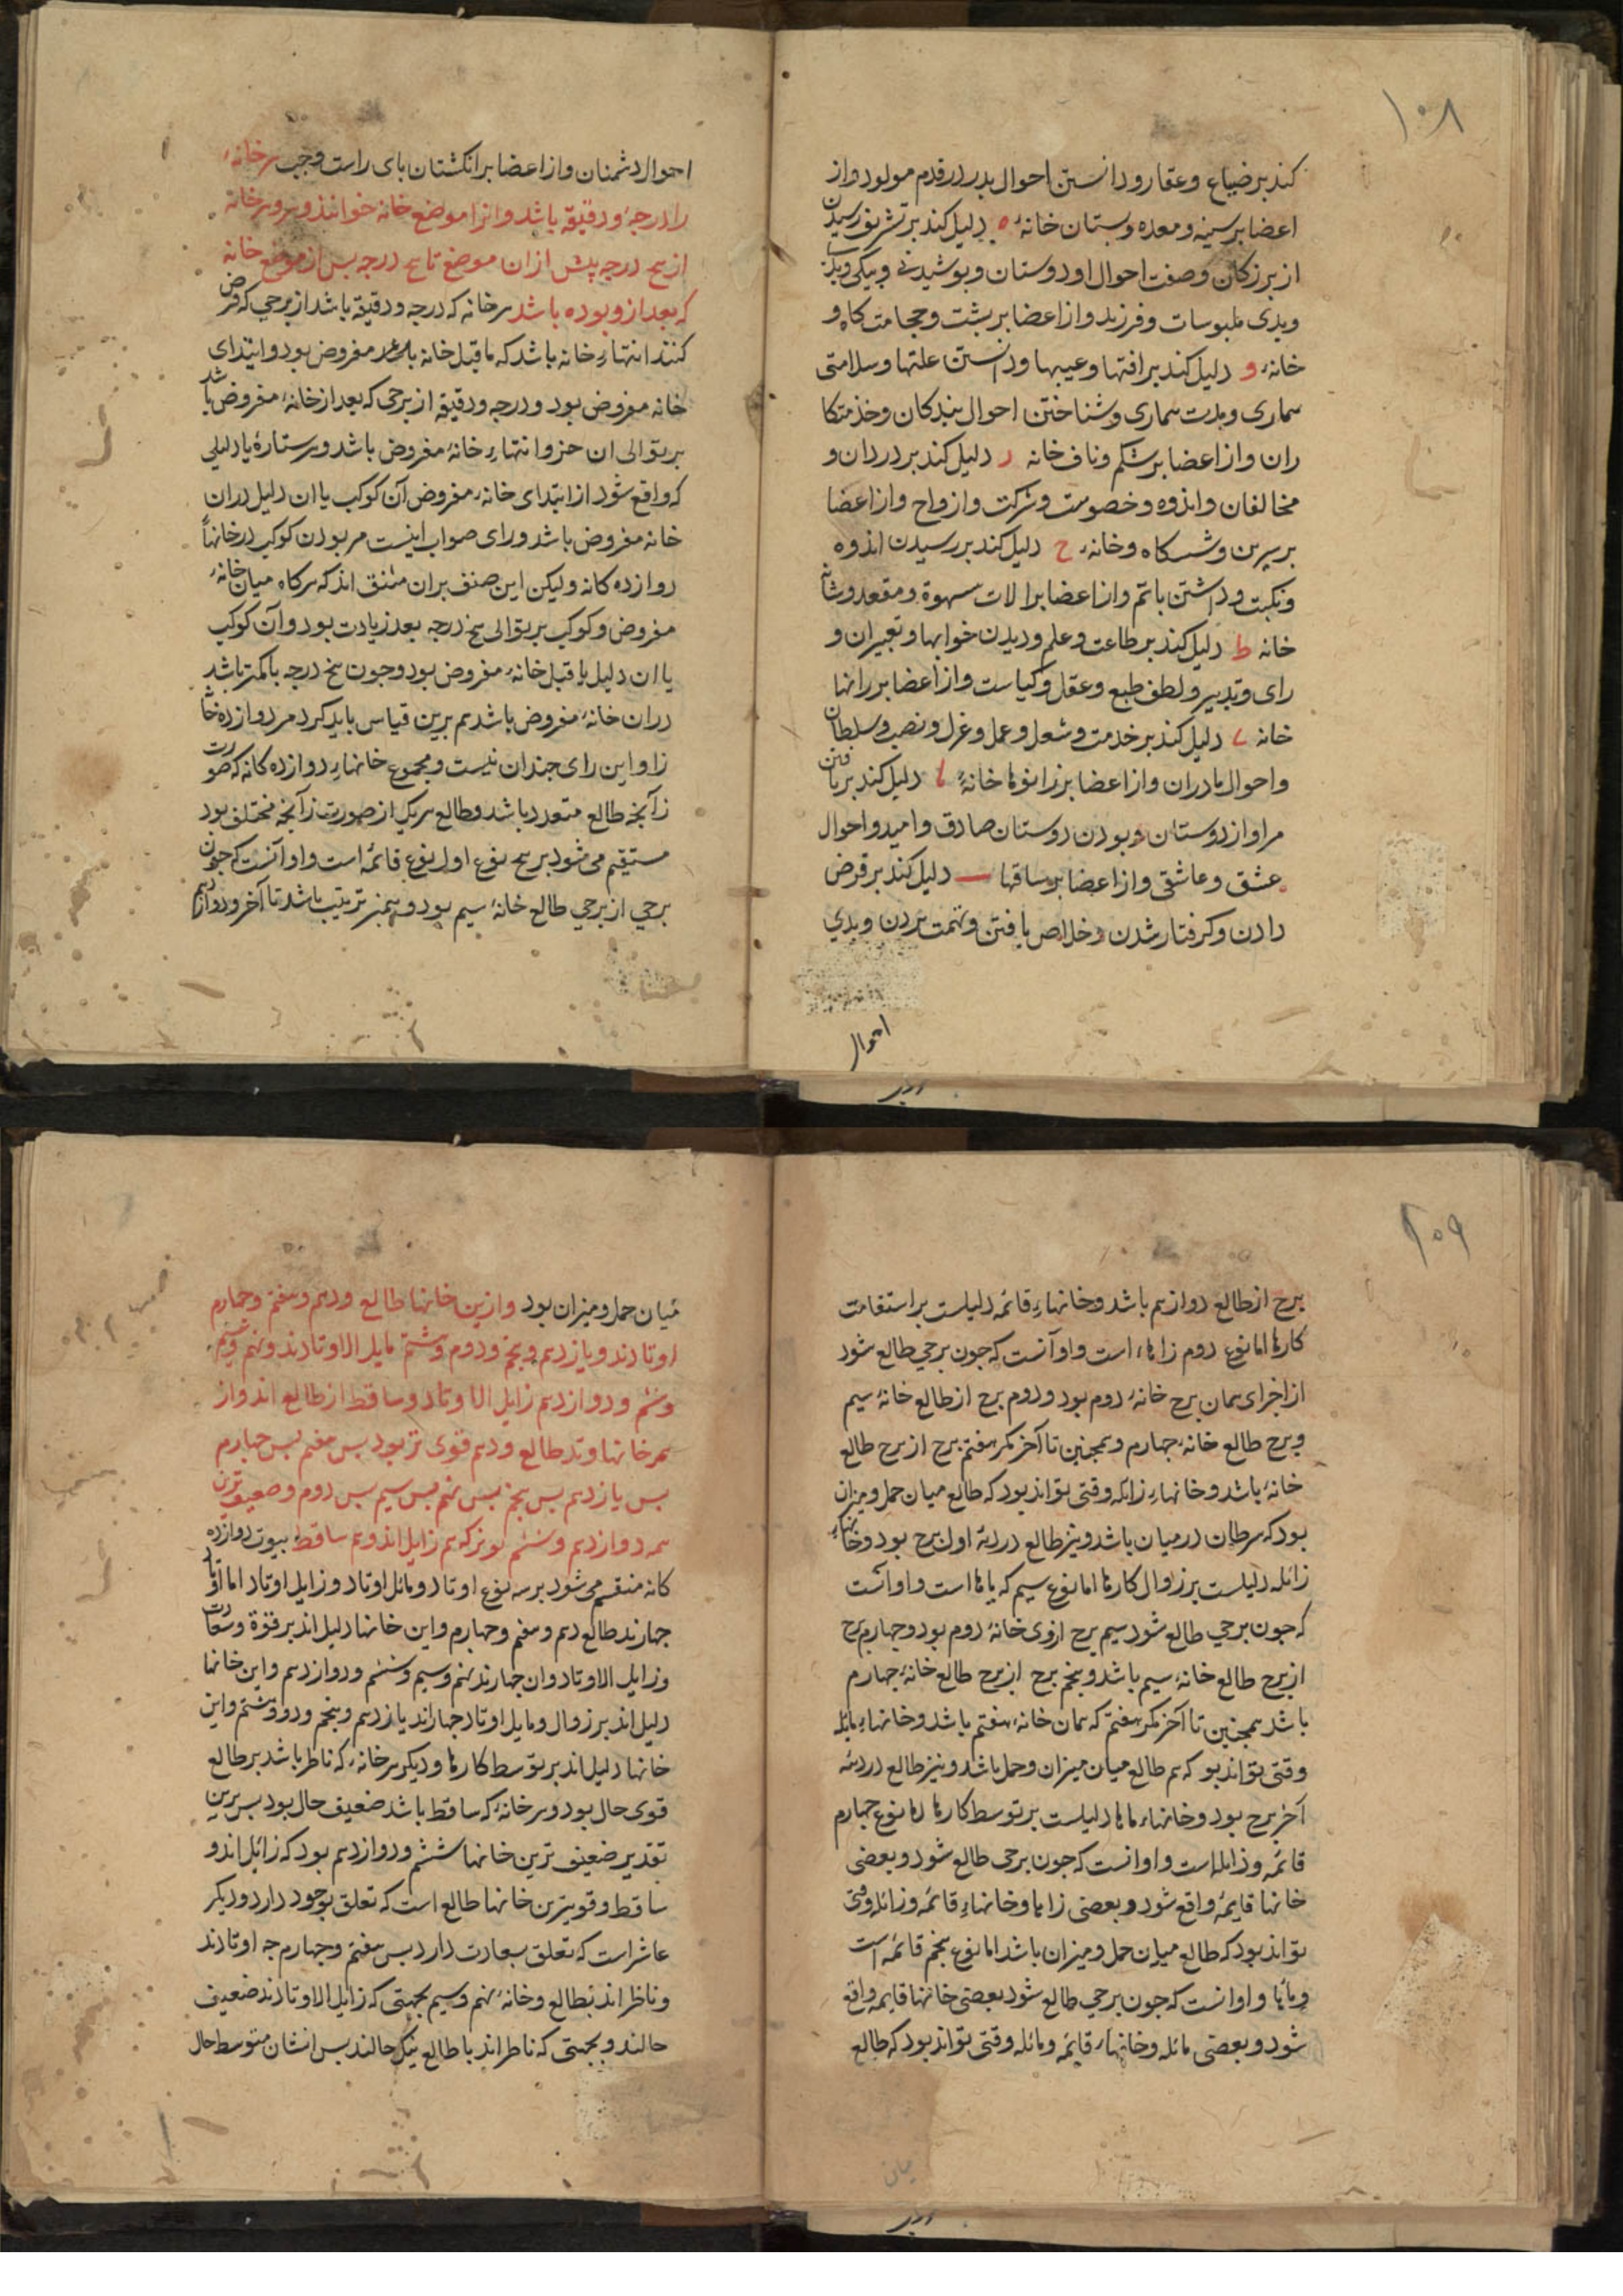 ۱۰۸
کند بر ضیاع و عقار و دانستن احوال پدر در قدم مولود و از
اعضا بر سینه و معده و پستان خانهٔ ه دلیل کند بر تشریف رسیدن
از بزرکان و صفت احوال او دوستان و پوشیدنی و نیکی و
وبدی ملبوسات و فرزند و از اعضا بر پشت و حجامت کاه و
خانهٔ و دلیل کند بر افتها و عیبها و دانستن علتها و سلامتی
بیماری و مدت بیماری و شناختن احوال بندکان و خذمتکا
ران و از اعضا بر شکم و ناف خانه ر دلیل کند بر دردان و
مخالفان و اندوه و خصومت و شرکت و ازواج و از اعضا
بر سرین و شستکاه و خانهٔ ح دلیل کند بر رسیدن اندوه
ونکبت و داشتن ماتم و از اعضا بر الات سهوة و مقعد و
خانه ط دلیل کند بر طاعت و علم و دیدن خوابها و تعبیران و
رای و تدبیر و لطف طبع و عقل و کیاست و از اعضا بر رانها
خانه ی دلیل کند بر خدمت و شعل و عمل و عزل و نصب و سلطان
واحوال مادران و از اعضا بر زانوها خانهٔ یا دلیل کند بر یافتن
مراد از دوستان و بودن دوستان صادق و امید و احوال
عشق و عاشقی و از اعضا بر ساقها دلیل کند بر قرض
دادن و کرفتار شدن و خلاص یافتن و تهمت بردن و بدی
احوال
احوال دشمنان و از اعضا بر انکشتان پای راست و چپ هر خانهٔ
را درجه و دقیقه باشد و انرا موضع خانه خوانند و هر خانه
از پنج درجه پیش از ان موضع تا پنج درجه پس از موضع خانه
که بعد از و بوده باشد هر خانه که درجه و دقیقه باشد از برجی که فرض
کنند انتهاء خانه باشد که ماقبل خانه مفروض بود و ابتدای
خانه مفروض بود و درجه و دقیقه از برجی که بعد از خانهٔ مفروض باشد
بر توالی ان جزو انتهاء خانهٔ مفروض باشد و هر ستارهٔ یا دلیلی
که واقع شود از ابتدای خانهٔ مفروض آن کوکب یا ان دلیل دران
خانه مفروض باشد و رای صواب اینست مر بودن کوکب در خانها
دوازده کانه و لیکن این صنف بران متفق اند که هرکاه میان خانهٔ
مفروض و کوکب بر توالی پنج درجه بعد زیادت بود و آن کوکب
یا ان دلیل ماقبل خانهٔ مفروض بود و چون پنج درجه یا کمتر باشد
دران خانهٔ مفروض باشد هم برین قیاس باید کرد مر دوازده خا
نرا و این رای چندان نیست و مجموع خانهاء دوازده کانه که صورت
زآیچهٔ طالع متعدد باشد و طالع هریک از صورت زآیچه مختلف بود
مستقیم می شود بر پنج نوع اول نوع قائمه است و او آنست که چون
برجی از برجی طالع خانهٔ سیم بود و همین ترتیب باشد تا آخر و دوازدهم
۲۰۹
برج از طالع دوازدهم باشد و خانهاء قائمه دلیلست بر استقامت
کارها اما نوع دوم زائله است و او آنست که چون برجی طالع شود
از اجزای همان برج خانهٔ دوم بود و دوم برج از طالع خانهٔ سیم
و برج طالع خانهٔ چهارم و همچنین تا آخر مکر هفتم برج از برج طالع
خانهٔ باشد و خانهاء زائله وقتی تواند بود که طالع میان حمل و میزان
بود که سرطان در میان باشد و نیز طالع در اول برج بود و خانهاء
زائله دلیلست بر زوال کارها اما نوع سیم که مائله است و او آنست
که چون برجی طالع شود سیم برج از وی خانهٔ دوم بود و چهارم برج
از برج طالع خانهٔ سیم باشد و پنجم برج از برج طالع خانهٔ چهارم
باشد همچنین تا آخر مکر هفتم که همان خانهٔ هفتم باشد و خانهاء مایله
وقتی تواند بود که هم طالع میان میزان و حمل باشد و نیز طالع در
آخر برج بود و خانهاء مائله دلیلست بر توسط کارها اما نوع چهارم
قائمه و زائله است و او انست که چون برجی طالع شود و بعضی
خانها قایمه واقع شود و بعضی زایله و خانهاء قائمه و زائله وقتی
تواند بود که طالع میان حمل و میزان باشد اما نوع پنجم قائمه است
و مائله و او انست که چون برجی طالع شود بعضی خانها قایمه واقع
شود و بعضی مائله و خانهاء قایمه و مائله وقتی تواند بود که طالع
میان
میان حمل و میزان بود و ازین خانها طالع و دهم و هفتم و چهارم
اوتادند و یازدهم و پنجم و دوم و هشتم مایل الاوتادند و نهم و سیم
و ششم و دوازدهم زایل الاوتاد و ساقط از طالع اند و از
همه خانها وتد طالع و دهم قوی تر بود پس هفتم پس چهارم
پس یازدهم پس پنجم پس نهم پس سیم پس دوم و ضعیف ترین
همه دوازدهم و ششم بود که هم زایل اند و هم ساقط بیوت دوازده
کانه منقسم می شود بر سه نوع اوتاد و مائل اوتاد و زایل اوتاد اما اوتاد
چهارند طالع دهم و هفتم و چهارم و این خانها دلیل اند بر قوة و سعادت
و زایل الاوتاد و ان چهارند نهم و سیم و ششم و دوازدهم و این خانها
دلیل اند بر زوال و مایل اوتاد چهاراند یازدهم و پنجم و دوم و هشتم و این
خانها دلیل اند بر توسط کارها و دیکر هر خانه که ناظر باشد بر طالع
قوی حال بود و هر خانهٔ که ساقط باشد ضعیف حال بود پس برین
تقدیر ضعیف ترین خانها ششم و دوازدهم بود که زائل اند و
ساقط و قویترین خانها طالع است که تعلق بوجود دارد و دیکر
عاشر است که تعلق بسعادت دارد پس هفتم و چهارم چه اوتادند
و ناظر اند بطالع و خانهٔ نهم و سیم بجهتی که زایل الاوتادند ضعیف
حالند و بجهتی که ناظر اند با طالع نیک حالند پس ایشان متوسط حال